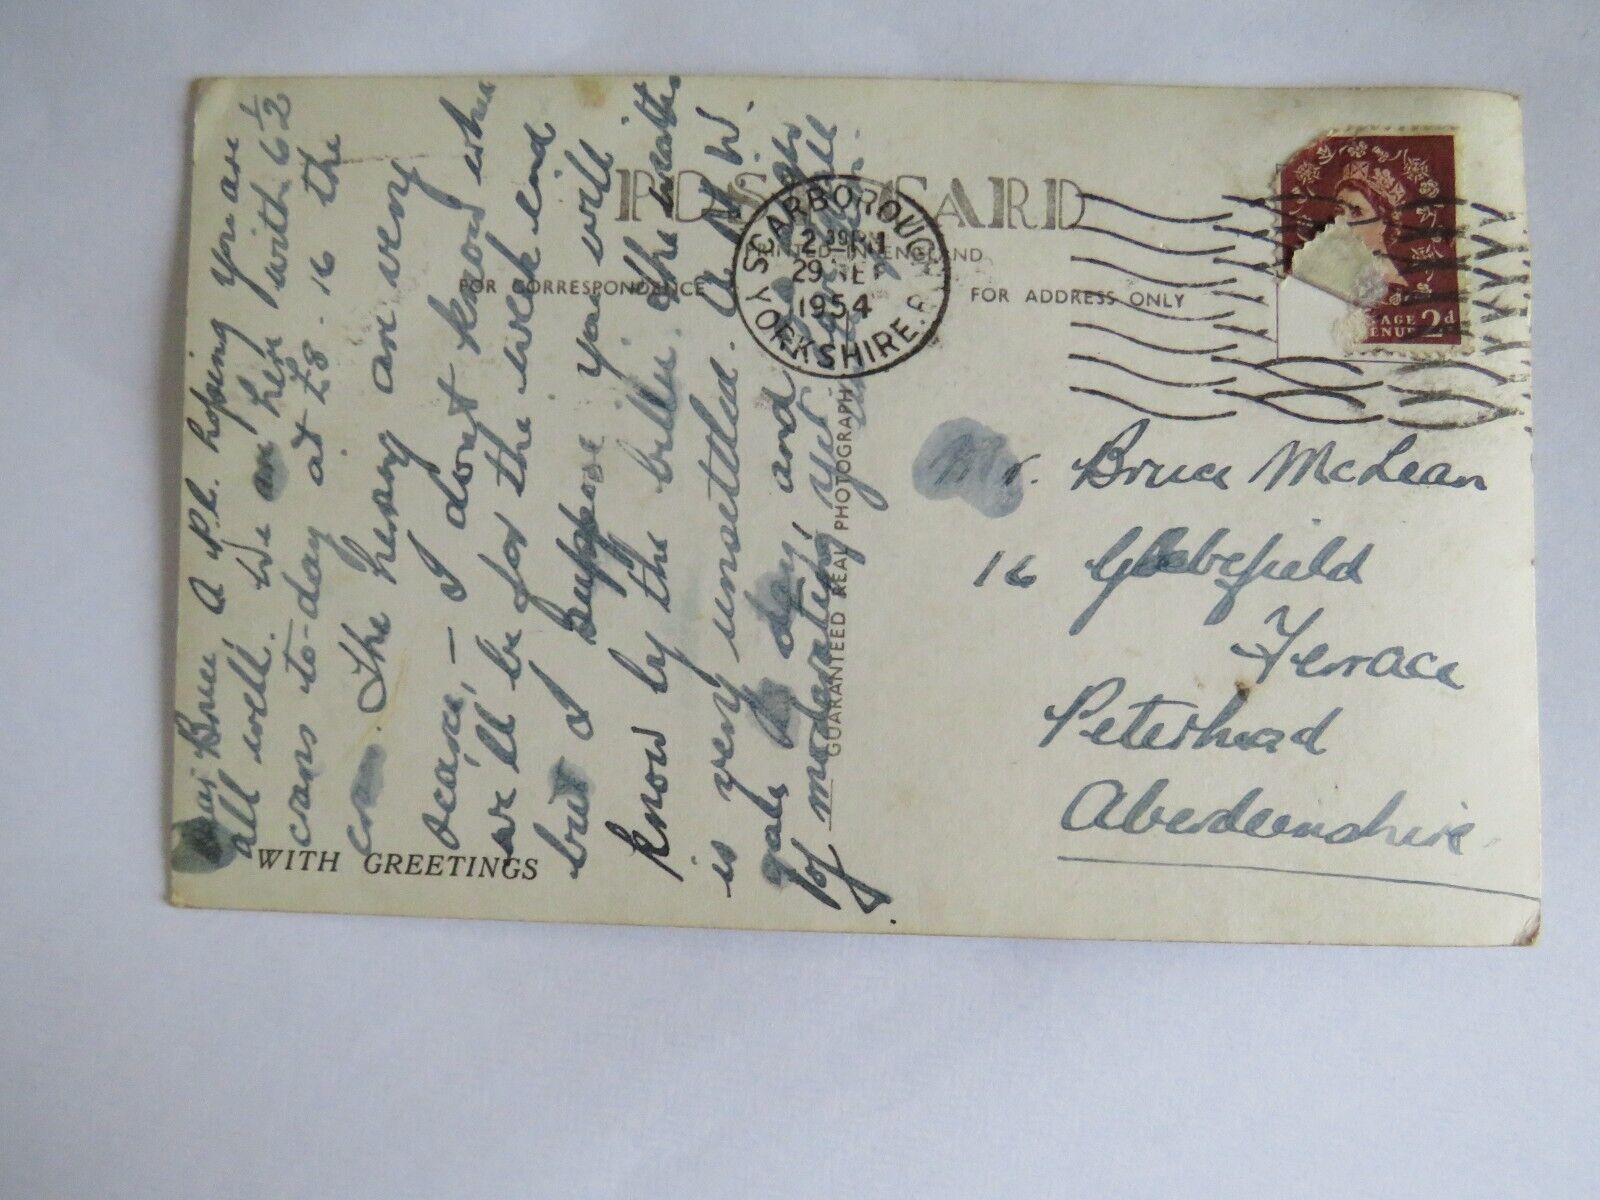 POST CARD
PRINTED IN ENGLAND
FOR CORRESPONDENCE
FOR ADDRESS ONLY
SCARBOROUGH
2 PM
29 SEP
1954
YORKSHIRE
2d
Bruce A P.C. hoping you are
all well. We are here with 6½
crans to-day at £8. 16 the
cran. The herring are very
scarce, – I don't know when
we'll be for the week end
but I suppose you will
know by the bills. The weather
is very unsettled. A N.W.
gale day, and
of moderating yet
Mr. Bruce McLean
16 Glebefield
Terrace
Peterhead
Aberdeenshire
GUARANTEED REAL PHOTOGRAPH
WITH GREETINGS